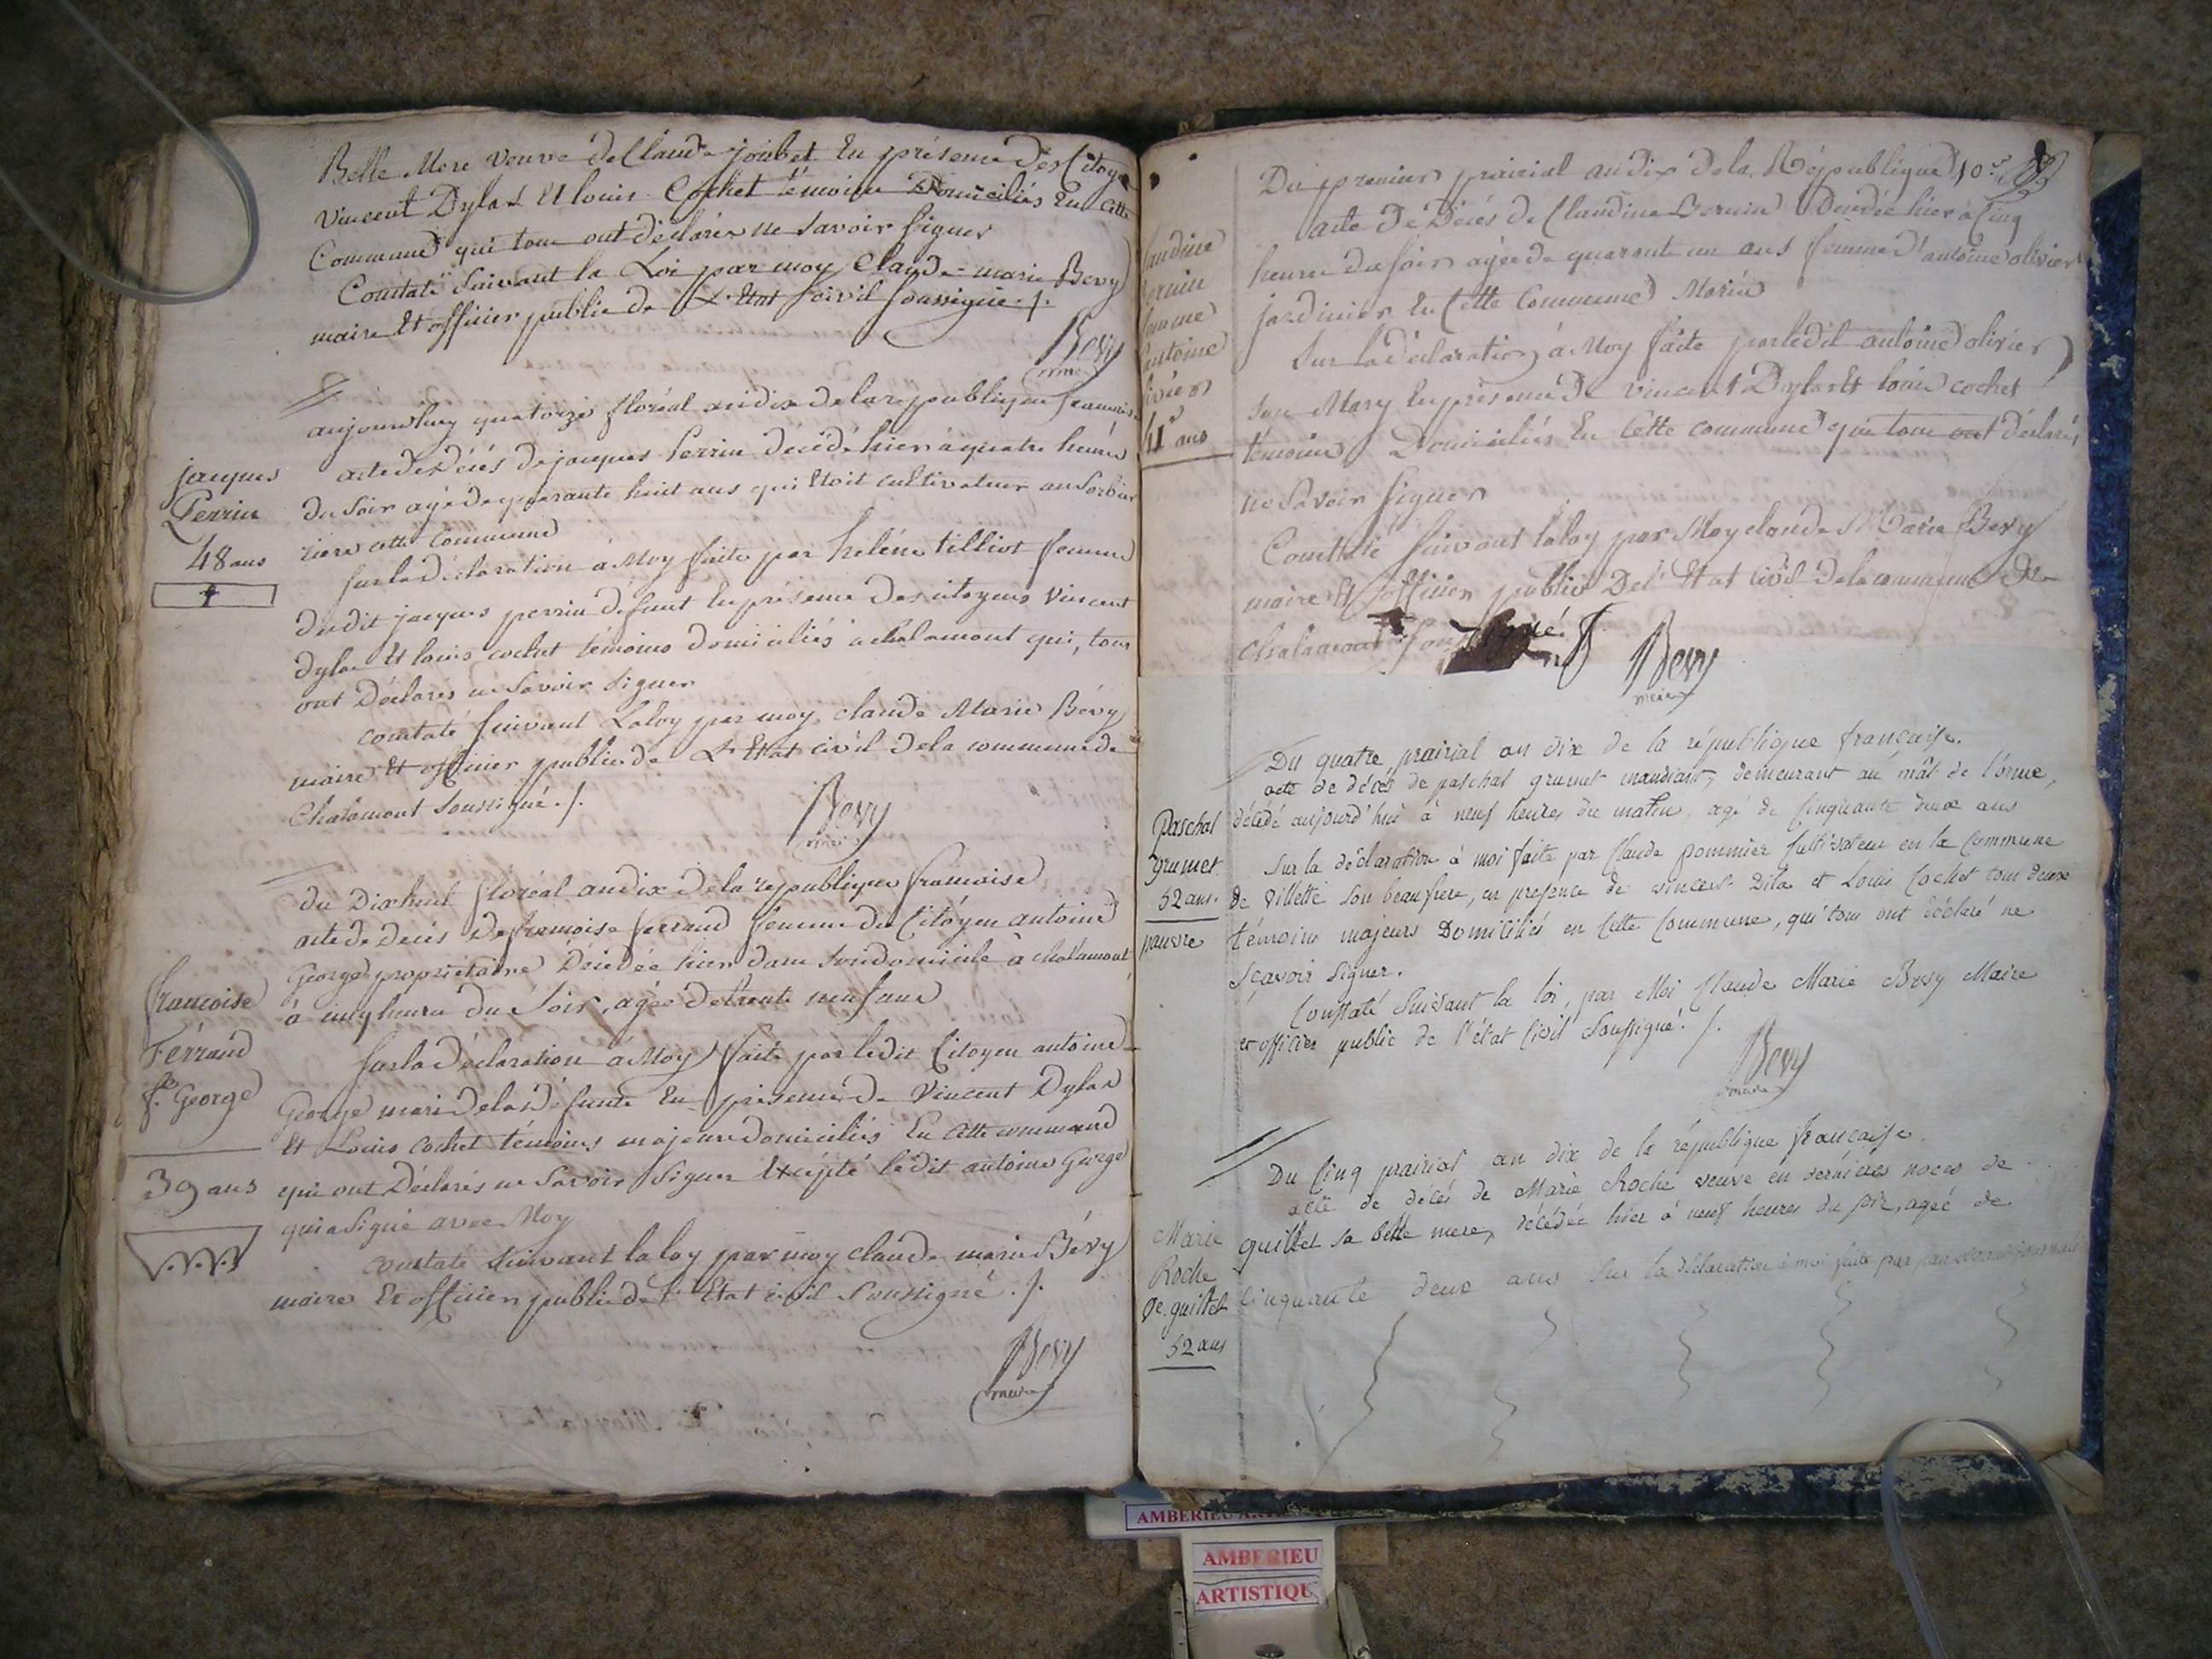 Belle Mere veuve de Claude joubet En présence des Citoyen
vincent Dylas Et louis Cochet témoins Domiciliés En cette
Commune qui tous ont déclarés ne savoir signer
Constaté suivant la Loi par moy Claude-marie Bevy
maire Et officier public de L'Etat civil soussigné ./.
Bevy
maire
aujourdhuy quatorze floréal an dix de la republique francaise
jacques
Perrin
48 ans
acte de Décés de jacques Perrin décédé hier à quatre heures
du soir agé de quarante huit ans qui Etoit cultivateur au
cette Commune
sur la déclaration à Moy faite par heléne tilliot femme
dudit jacques perrin défunt En présence des citoyens Vincent
Dylas Et louis cochet témoins domiciliés a chalamont qui, tous
ont Déclarés ne Savoir Signer
constaté suivant La loy par moy claude Marie Bévy
maire Et officier public de L'Etat civil de la commune de
Chalamont Soussigné ./.
Bevy
maire
du Dixhuit floréal an dix de la republique francaise
acte de Décés de francoise ferrand femme du Citoyen antoine
George propriétaire Décédée hier dans son domicile à chalamont
à cinq heures du Soir, agée de trente neuf ans
francoise
Férrand
fe. George
39 ans
V.V.V.
sur la Déclaration à Moy faite par ledit Citoyen antoine
George mari de la défunte En présence de Vincent Dylas
Et Louis cochet témoins majeurs domiciliés En cette commune
qui ont Déclarés ne Savoir Signer Excépté ledit antoine George
qui a Signé avec Moy
constaté suivant la loy par moy claude marie Bévy
maire Et officier public de l'Etat civil Soussigné ./.
Bevy
maire
Du premier prairial an dix de la République
acte de Décés de Claudine Decédée hier à Cinq
heures du soir agée de quarante un ans femme d'antoine olivier
jardinier En Cette Commune
41 ans
sur la déclaration à Moy faite par ledit antoine olivier
son Mary En présence de vincent Dylas Et louis cochet
témoins Domiciliés En Cette commune qui tous ont déclarés
ne Savoir signer
Constaté suivant la loy par Moy claude Marie Bevy
maire Et officier public De l'Etat civil de la commune de
chalamont
Bevy
maire
Du quatre prairial an dix de la république française.
acte de décés de paschal grumet mandiant, demeurant au mât de l'orme,
décédé aujourd'hui à neuf heures du matin, agé de Cinquante deux ans
Paschal
grumet
52 ans.
pauvre
Sur la déclaration à moi faite par Claude pommier Cultivateur en la Commune
de Villette son beaufrere, en presence de vincent Dilas et Louis Cochet tous deux
témoins majeurs Domiciliés en Cette Commune, qui tous ont déclaré ne
sçavoir signer.
Constaté suivant la loi, par Moi Claude Marie Bevy Maire
et officier public de l'état Civil soussigné. /.
Bevy
maire
Du Cinq prairial an dix de la république française.
acte de décés de Marie Roche veuve en dernieres noces de
guillet sa belle mere, décédée hier à neuf heures du soir, agée de
Cinquante deux ans sur la déclaration à moi faite par
Marie
Roche
Ve. guillet
52 ans
AMBERIEU
AMBERIEU
ARTISTIQU